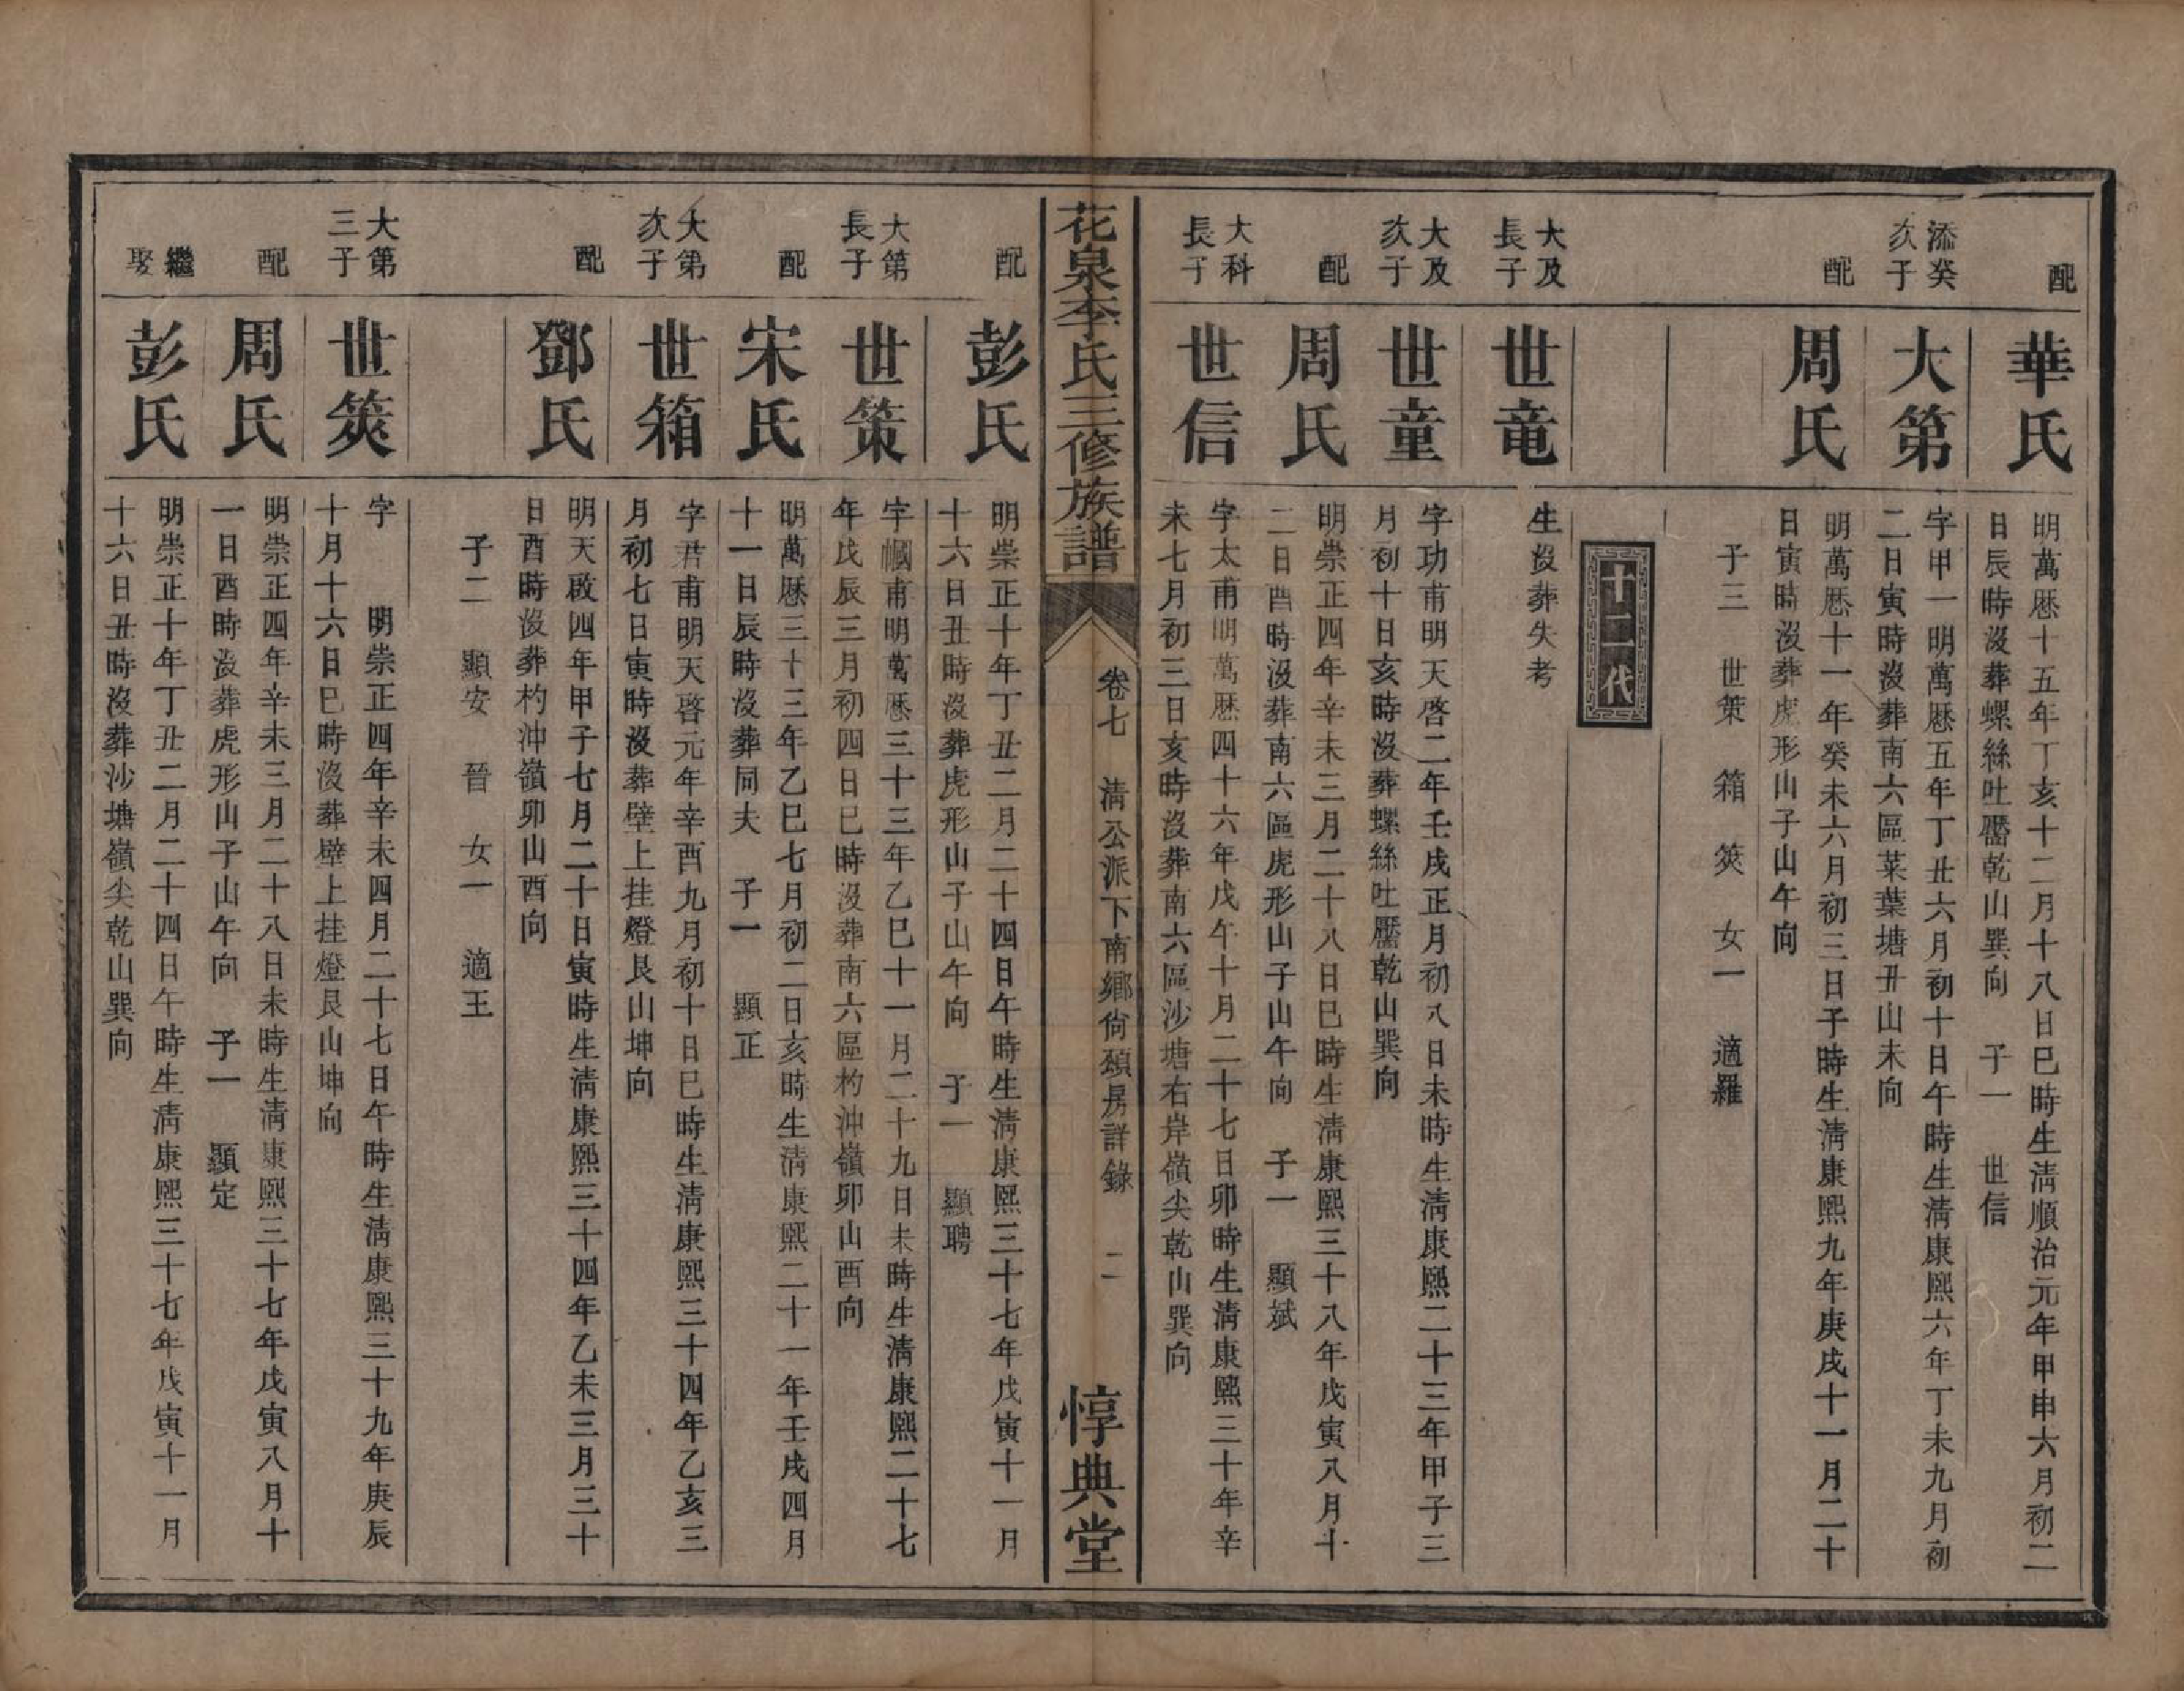 配
華氏
明萬厯十五年丁亥十二月十八日巳時生淸順治元年甲申六月初二
日辰時沒葬螺絲吐靨乾山巽向　子一　世信
添癸
次子
大第
字甲一明萬厯五年丁丑六月初十日午時生淸康熙六年丁未九月初
二日寅時沒葬南六區菜葉塘丑山未向
配
周氏
明萬厯十一年癸未六月初三日子時生淸康熙九年庚戌十一月二十
日寅時沒葬虎形山子山午向
子三　世策　箱　筴　女一　適羅
十二代
大及
長子
世竜
生沒葬失考
大及
次子
世童
字功甫明天啓二年壬戌正月初八日未時生淸康熙二十三年甲子三
月初十日亥時沒葬螺絲吐靨乾山巽向
配
周氏
明崇正四年辛未三月二十八日巳時生淸康熙三十八年戊寅八月十
二日酉時沒葬南六區虎形山子山午向　子一　顯斌
大科
長子
世信
字太甫明萬厯四十六年戊午十月二十七日卯時生淸康熙三十年辛
未七月初三日亥時沒葬南六區沙塘右岸嶺尖乾山巽向
花泉李氏三修族譜
卷七　淸公派下南鄉尙頌房詳錄　二
惇典堂
配
彭氏
明崇正十年丁丑二月二十四日午時生淸康熙三十七年戊寅十一月
十六日丑時沒葬虎形山子山午向　子一　顯聘
大第
長子
世策
字幗甫明萬厯三十三年乙巳十一月二十九日未時生淸康熙二十七
年戊辰三月初四日巳時沒葬南六區杓沖嶺卯山酉向
配
宋氏
明萬厯三十三年乙巳七月初二日亥時生淸康熙二十一年壬戌四月
十一日辰時沒葬同夫　子一　顯正
大第
次子
世箱
字君甫明天啓元年辛酉九月初十日巳時生淸康熙三十四年乙亥三
月初七日寅時沒葬壁上挂燈艮山坤向
配
鄧氏
明天啟四年甲子七月二十日寅時生淸康熙三十四年乙未三月三十
日酉時沒葬杓沖嶺卯山酉向
子二　顯安　晉　女一　適王
大第
三子
世筴
字　　明崇正四年辛未四月二十七日午時生淸康熙三十九年庚辰
十月十六日巳時沒葬壁上挂燈艮山坤向
配
周氏
明崇正四年辛未三月二十八日未時生淸康熙三十七年戊寅八月十
一日酉時沒葬虎形山子山午向　子一　顯定
繼
娶
彭氏
明崇正十年丁丑二月二十四日午時生淸康熙三十七年戊寅十一月
十六日丑時沒葬沙塘嶺尖乾山巽向